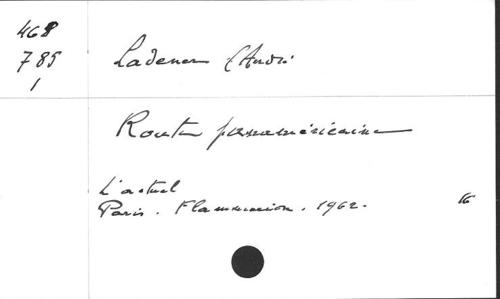 468
785
1
Ladener (André
Route panaméricaine
L'actuel
Paris. Flammarion. 1962.
16